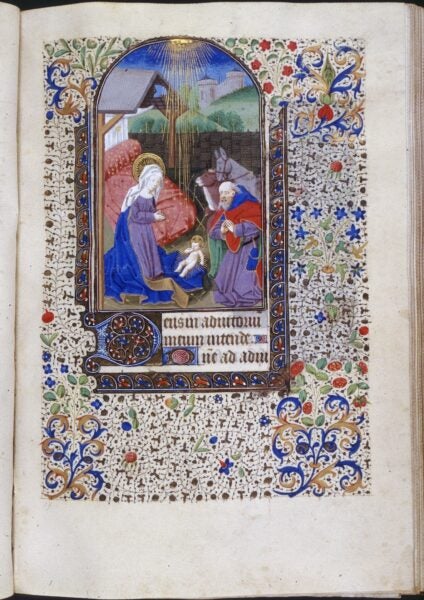 Deus in adiutoriu
meum intende
Dne ad adiu